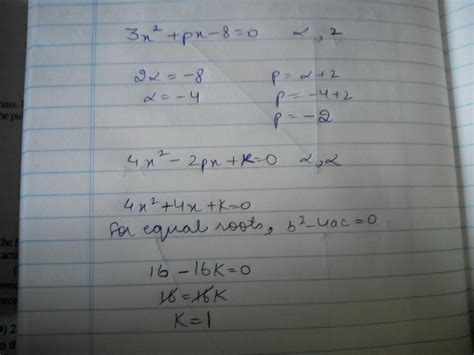 3x² + px - 8 = 0    α, 2
2α = -8    p = α + 2
α = -4    p = -4 + 2
p = -2
4x² - 2px + K = 0    α, α
4x² + 4x + K = 0
For equal roots, b² - 4ac = 0
16 - 16K = 0
16 = 16K
K = 1